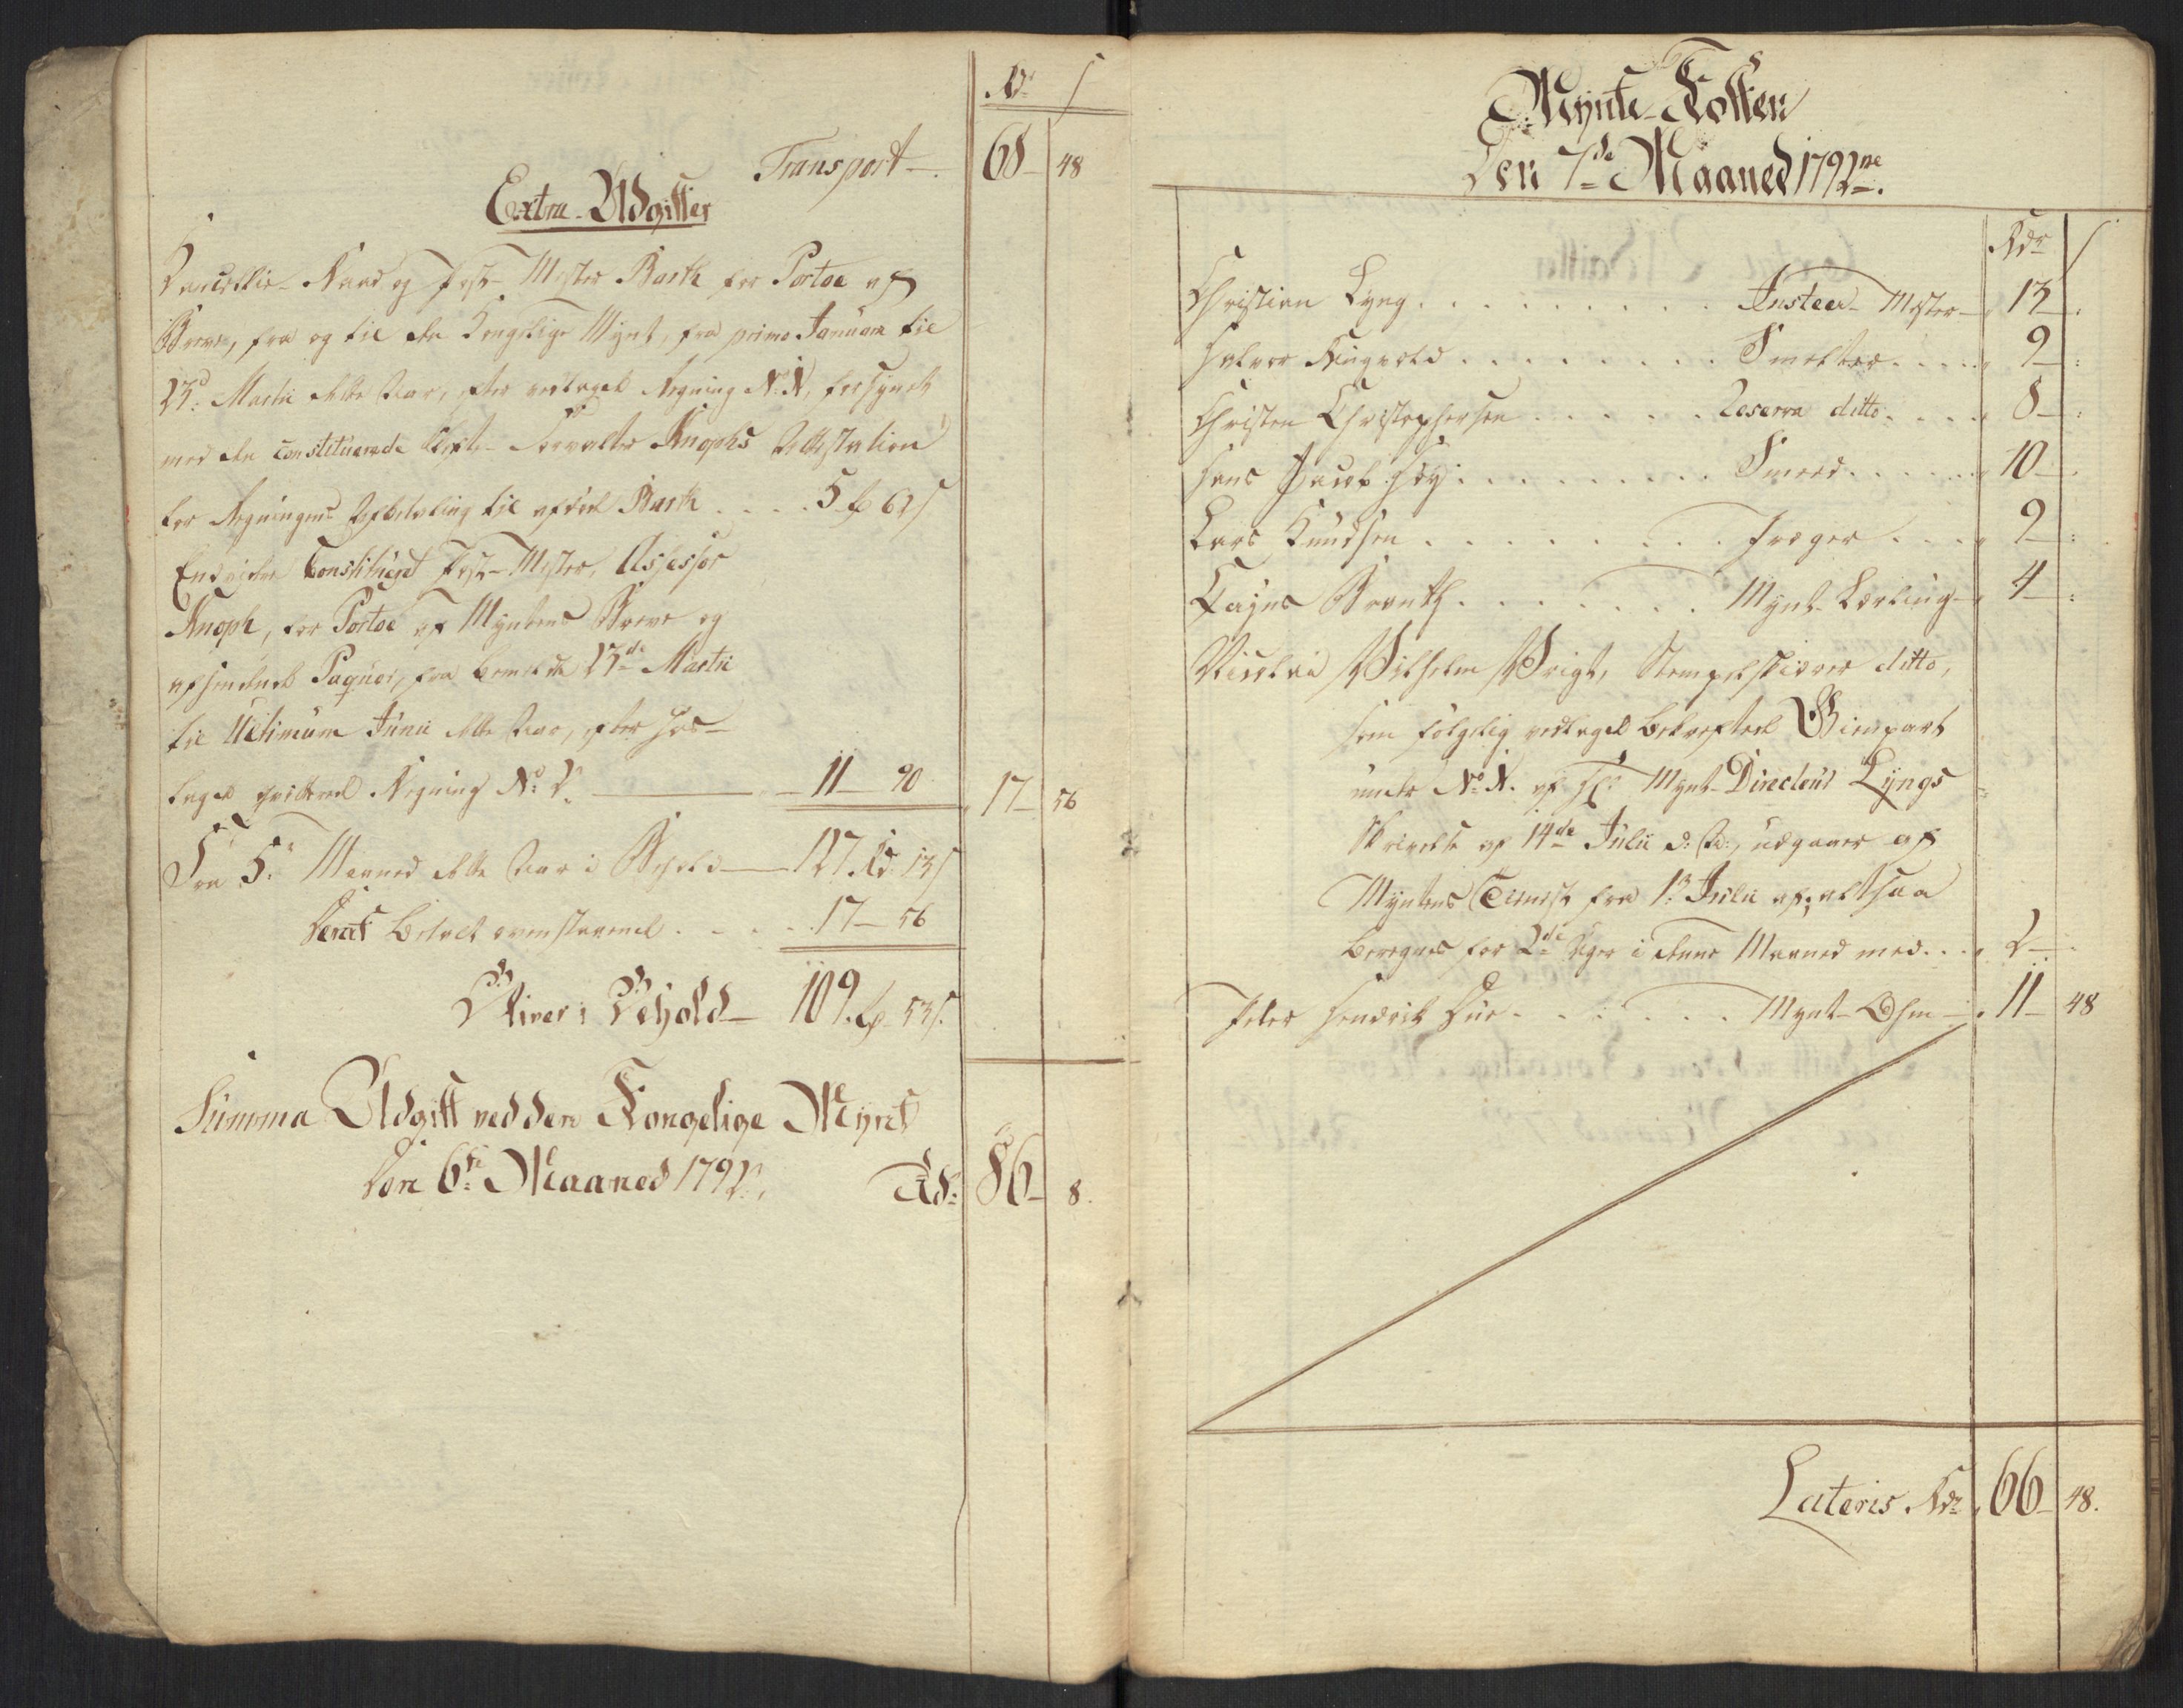 Rd. ſ
Transport 68 48
Extra-Udgifter
Cancellie-Raad og Post-Mester Bark for Portoe af
Breve, fra og til den Kongelige Mynt, fra primo Januarii til
23d. Martii dette Aar, efter vedlagde Regning No. N, forsynet
med den constituerede Forvalter Knophs Attestation
for Regningens Afbetaling til afdød Bark . . . . 5 rd 62 ſ
Endvidere Constitueret Post-Mester, Assessor
Knoph, for Portoe af Myntens Breve og
afsendende Paqver, fra bemeldte 23de Martii
til Ultimum Junii dette Aar, efter hos-
lagde qvitterede Regning No. 11 90 17 56
Fra 5. Maaned dette Aar i Behold 127 Rd. 13 ſ
Deraf betalt ovenstaaende . . . . 17 56
Bliver i Behold 109 rd. 53 ſ.
Summa Udgift ved den Kongelige Mynt
Den 6te Maaned 1792. Rd. 86 8.
Mynte-Kosten
Den 7de Maaned 1792ne.
Rdr ſ
Christian Lyng . . . . . . . . . Justeer-Mester 13
Halvor Ringvold . . . . . . . . Smelter . . . . 9
Christen Christophersen . . . . . Reserva ditto . . . . 8
Hans Jacob Høy . . . . . . . . . Smeed . . . . . 10
Lars Knudsen . . . . . . . . . Præger . . . . 9
Brandt . . . . . . Mynt-Lærling 4
Nicolai Wilhelm Wrigt, Stempelskierer ditto,
som følgelig vedlagde bekræftede Gienpart
under No. N. af Hr. Mynt-Directeur Lyngs
Skrivelse af 14de Julii d: A:, udgaaer af
Myntens Tieneste fra 1. Julii af; altsaa
beregnes for 2de Uger i denne Maaned med . . . 2
Peter Hendrik . . . . . . . Mynt- 11 48
Lateris Rdr 66 48.